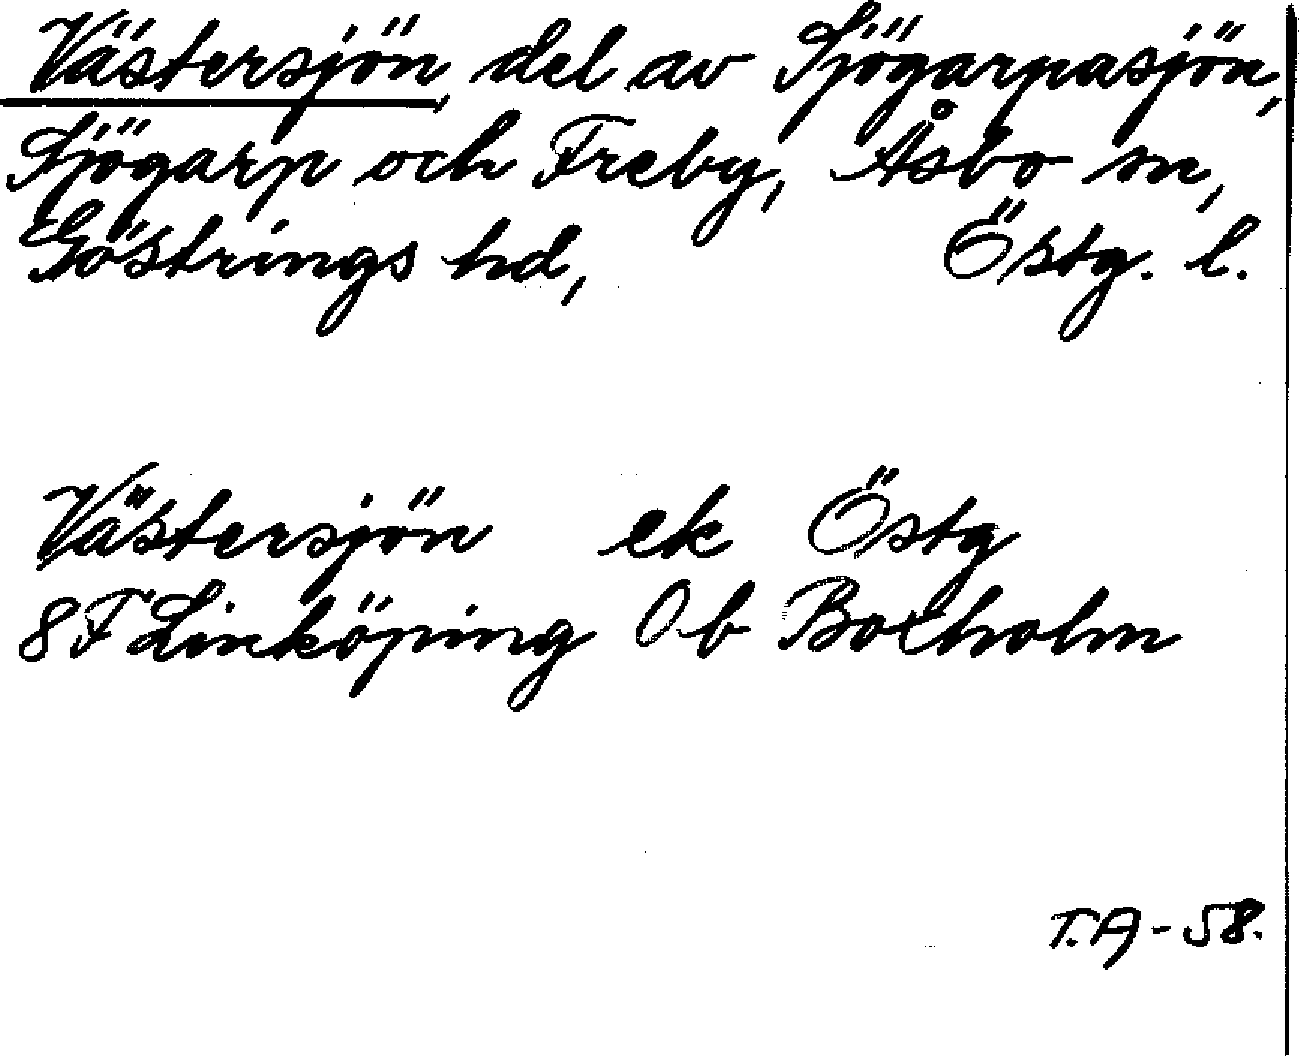 Västersjön, del av Sjögarpasjön,
Sjögarp och Freby, Åsbo sn,
Göstrings hd, Östg. l.
Västersjön ek Östg
8F Linköping 0b Boxholm
T.A-58.